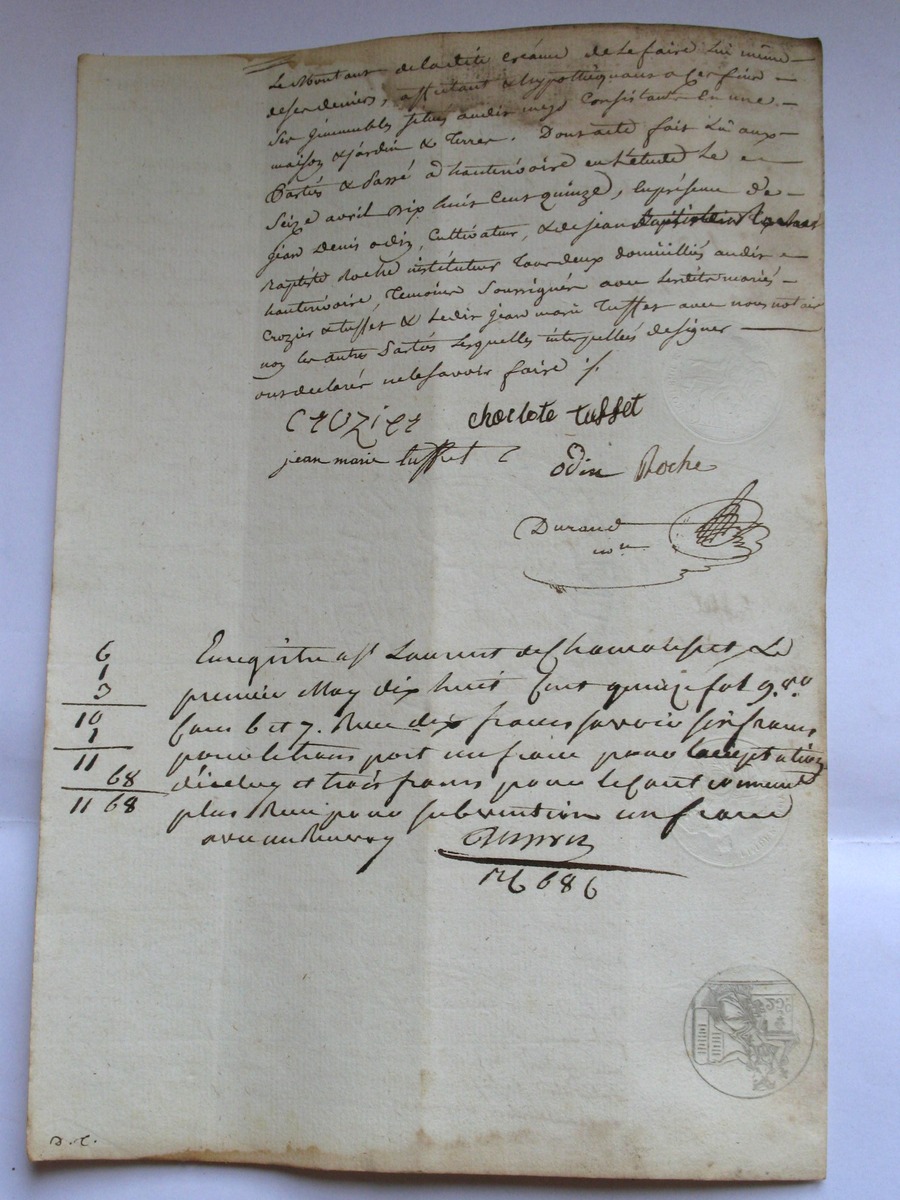 Le Montant de ladite créance de le faire lui même
de ses deniers, affectant & hypothéquant a ces fins
ses immeubles situés audit lieu Consistant En une
maison & jardin & Terres. Dont acte fait Lû aux
Parties & Passé a hauterivoire en l'étude Le
Seize avril Dix huit Cent quinze, En présence de
jean Denis odin, Cultivateur, & de jean
Baptiste Roche instituteur Tous deux domiciliés audit
hauterivoire, Temoins Soussignés avec Lesdits mariés
Crozier & tuffet & Ledit jean marie Tuffet avec nous notaire
non les autres Parties Lesquelles interpellées de signer
ont déclaré ne le savoir faire ./.
Crozier charlote tuffet
jean marie tuffet
odin Roche
Durand
nre
Enregistré a St Laurent de Chamousset Le
premier May dix huit Cent quinze fol 9. Ro
Cases 6 et 7. Reçu dix francs savoir six francs
pour le transport un franc pour lacceptation
dicelui et trois francs pour le Cautionnement
plus Reçu pour subvention un franc
avec un Renvoy
6
1
3
10
1
11
68
11 68
686
D. C.